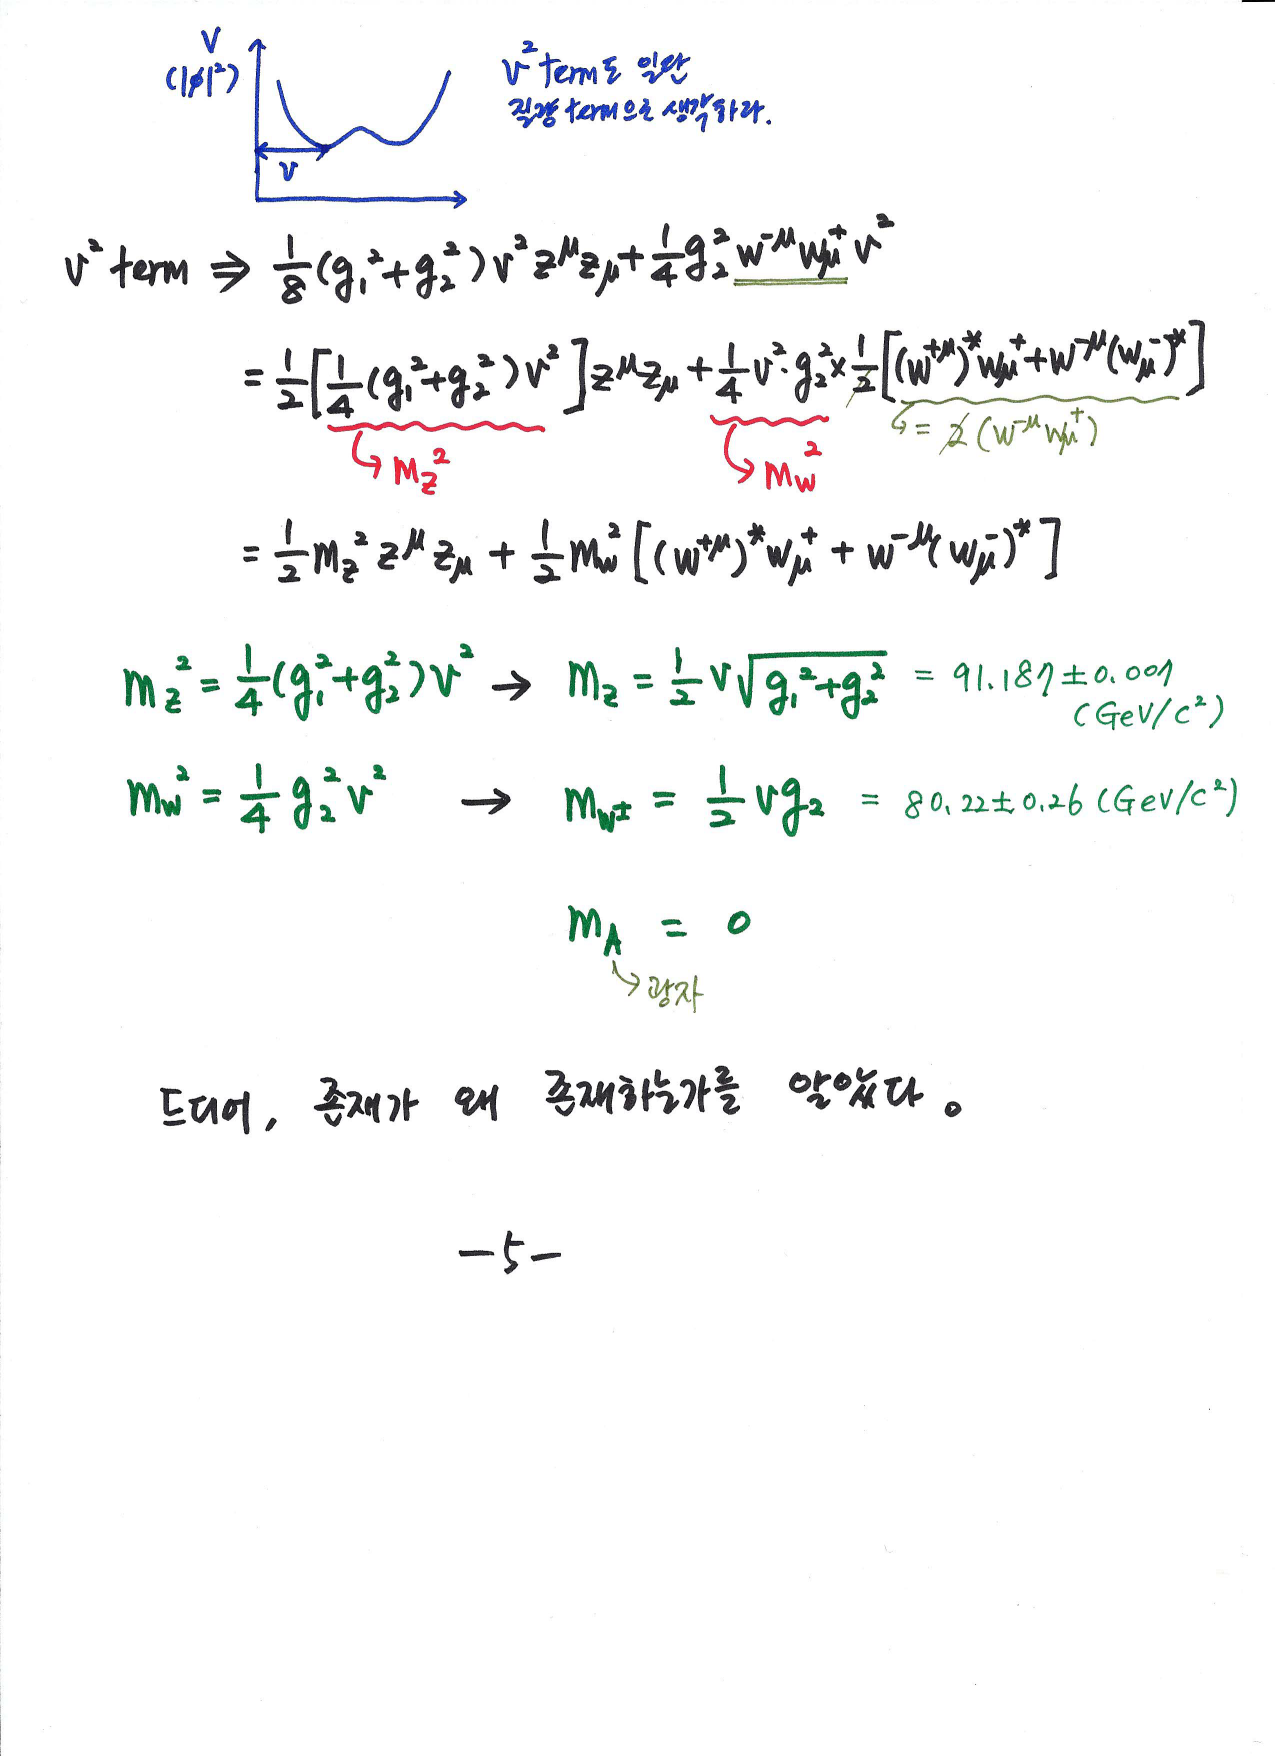 V
(|ϕ|²)
v
v² term도 일단
질량 term으로 생각하라.
v² term ⇒ 1/8 (g₁²+g₂²) v² Z^μ Z_μ + 1/4 g₂² W^-μ W_μ^+ v²
= 1/2 [1/4 (g₁²+g₂²) v²] Z^μ Z_μ + 1/4 v²·g₂² × 1/2 [(W^+μ)^* W_μ^+ + W^-μ (W_μ^-)^*]
↳ M_Z²
↳ M_W²
↳ = 2 (W^-μ W_μ^+)
= 1/2 M_Z² Z^μ Z_μ + 1/2 M_W² [(W^+μ)^* W_μ^+ + W^-μ (W_μ^-)^*]
M_Z² = 1/4 (g₁²+g₂²) v² → M_Z = 1/2 v √(g₁²+g₂²) = 91.187±0.007
(GeV/c²)
M_W² = 1/4 g₂² v² → M_W± = 1/2 v g₂ = 80.22±0.26 (GeV/c²)
M_A = 0
↳ 광자
드디어, 존재가 왜 존재하는가를 알았다.
-5-